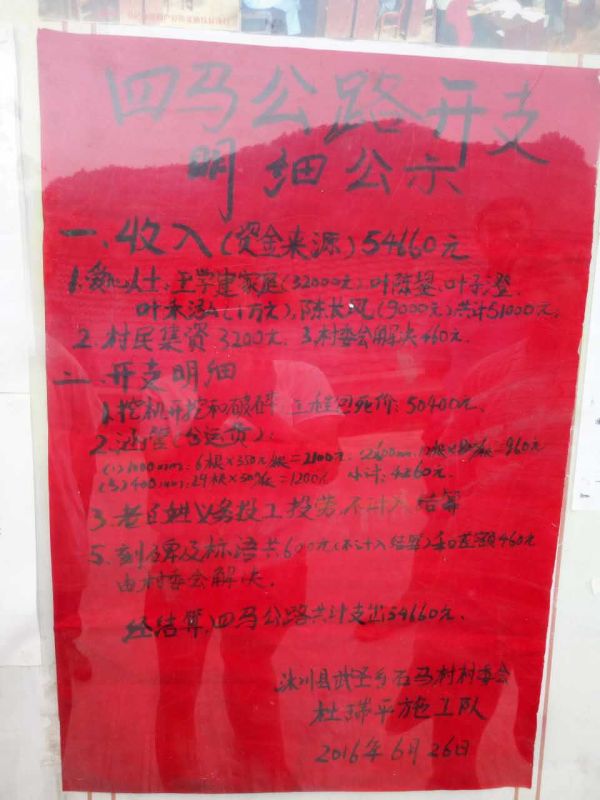 四马公路开支
明细公示
一、收入(资金来源)54660元
1.爱心人士:王学建家庭(32000元)叶陈鋆、叶永澄、
叶禾泓(1万元),陈长风(9000元)共计51000元.
2.村民集资3200元. 3.村委会解决460元.
二、开支明细
1.挖机开挖和破碎:工程包死价:50400元.
2.涵管(含运费):
(1)1000mm:6根×350元/根=2100元 (2)600mm:12根×80/根=960元
(3)400mm:24根×50/根=1200元 小计:4260元.
3.老百姓义务投工投劳,不计入结算
5.刻碑及标语共600元(不计入结算)差额460元
由村委会解决.
经结算,四马公路共计支出54660元.
县武圣乡石马村村委会
杜瑞平施工队
2016年6月26日